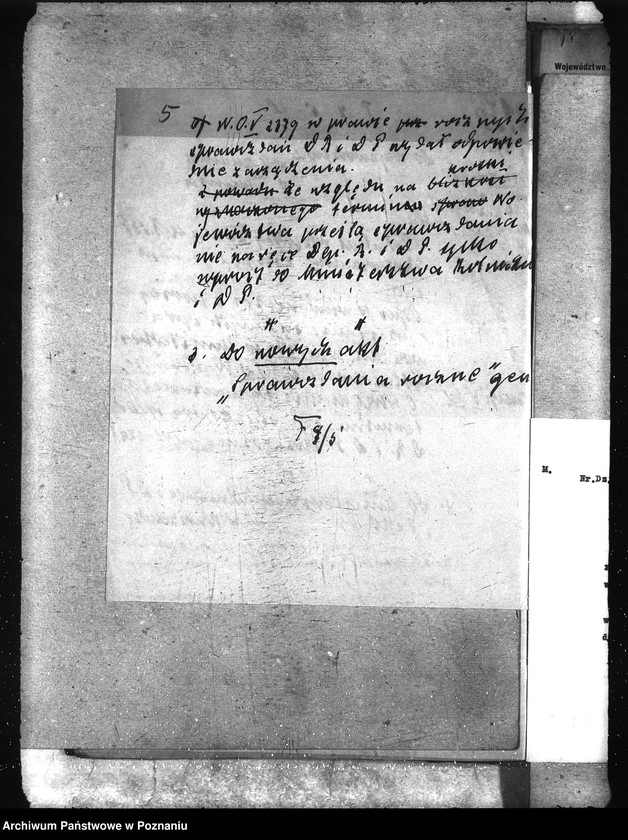 5
W.O.V 2379 w prawie rocznych
sprawozdań D R i D P wydał odpowie-
dnie zarządzenia.
krótki
z powodu Ze względu na bliskość
wyznaczonego termin Wo-
jewództwa prześlą sprawozdania
nie na ręce Dep. R. i D. P. tylko
wprost do Ministerstwa
i D P.
2. Do nowych akt
„Sprawozdania roczne" gen
9/5
Województwo
M.
Nr.Dz.
Archiwum Państwowe w Poznaniu